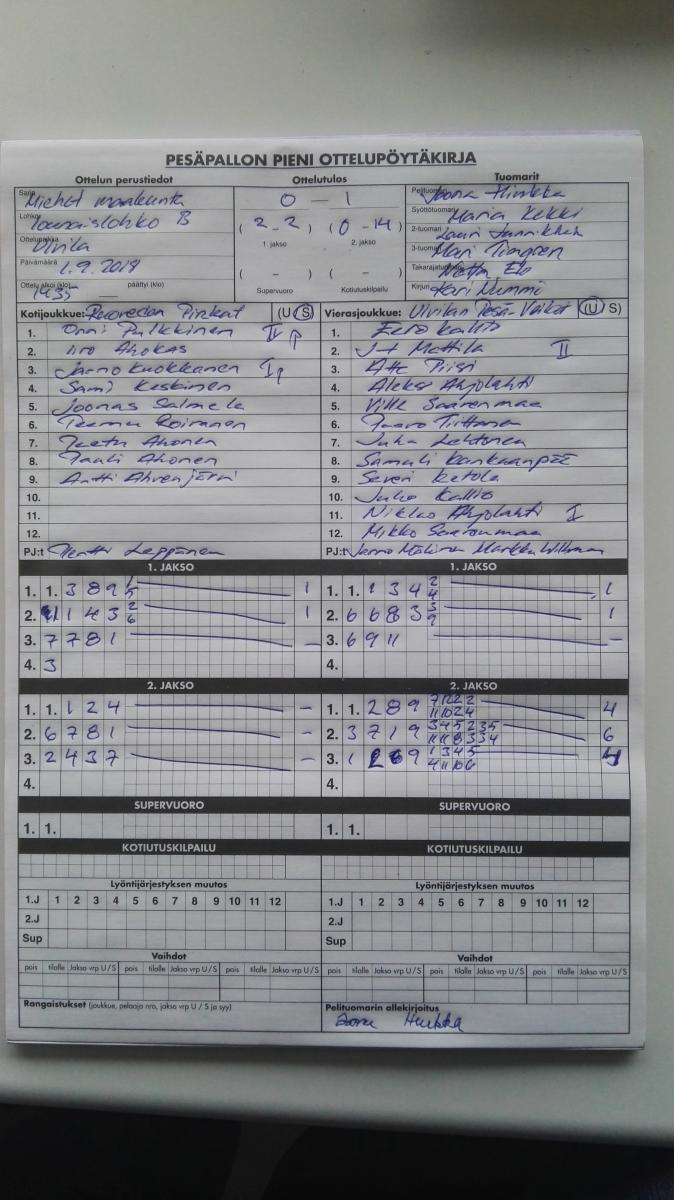 PESÄPALLON PIENI OTTELUPÖYTÄKIRJA
Ottelun perustiedot Ottelutulos Tuomarit
Sarja Miehet maakunta 0 - 1 Pelituomari Joona
Lohko B (2 - 2) (0 - 14) Syöttötuomari Maria Kekki
1. jakso 2. jakso
Ottelupaikka Ulvila 2-tuomari Lauri
Päivämäärä 1.9.2018 (-) (-) 3-tuomari Mari
Takarajatuomari
Ottelu alkoi (klo) 1435 päättyi (klo) Supervuoro Kotiutuskilpailu Kirjuri Kari Nummi
Kotijoukkue: (U S) Vierasjoukkue: Ulvilan Pesä-Veikot (U S)
1. Onni Pulkkinen II 1. Eero Kallio
2. Iiro Ahokas 2. J-P Mattila II
3. Jarno Kuokkanen I 3. Atte Piisi
4. Sami Keskinen 4. Aleksi Ahjolahti
5. Joonas Salmela 5. Ville Saarenmaa
6. Teemu Roivanen 6. Tuomo Tiittanen
7. Teetu Ahonen 7. Juha Lehtonen
8. Pauli Ahonen 8. Samuli Kankaanpää
9. Antti Ahvenjärvi 9. Severi Ketola
10. 10. Juho Kallio
11. 11. Niklas Ahjolahti I
12. 12. Mikko Saarenmaa
PJ:t Pertti Leppänen PJ:t Jarmo Markku
1. JAKSO 1. JAKSO
1. 1. 3 8 9 1 1. 1. 1 3 4 2 4 1
2. 1 4 3 2 6 1 2. 6 6 8 3 3 9 1
3. 7 7 8 1 – 3. 6 9 11 –
4. 3 4.
2. JAKSO 2. JAKSO
1. 1. 1 2 4 – 1. 1. 2 8 9 4
2. 6 7 8 1 – 2. 3 7 1 9 6
3. 2 4 3 7 – 3. 1 9 1 3 4 5 4
4. 4.
SUPERVUORO SUPERVUORO
1. 1. 1. 1.
KOTIUTUSKILPAILU KOTIUTUSKILPAILU
Lyöntijärjestyksen muutos Lyöntijärjestyksen muutos
1.J 1 2 3 4 5 6 7 8 9 10 11 12 1.J 1 2 3 4 5 6 7 8 9 10 11 12
2.J 2.J
Sup Sup
Vaihdot Vaihdot
pois tilalle Jakso vrp U/S pois tilalle Jakso vrp U/S pois tilalle Jakso vrp U/S pois tilalle Jakso vrp U/S pois tilalle Jakso vrp U/S pois tilalle Jakso vrp U/S
Rangaistukset (joukkue, pelaaja nro, jakso vrp U / S ja syy) Pelituomarin allekirjoitus